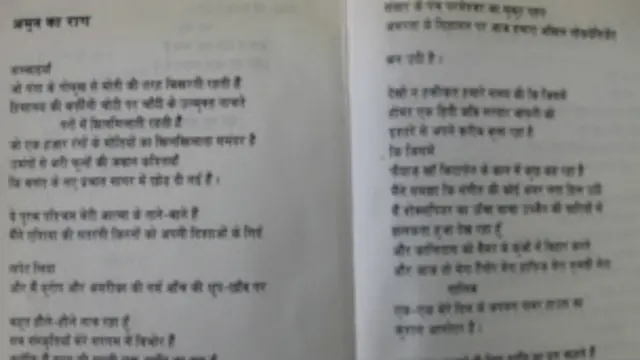 अमन का राग
सच्चाइयाँ
जो गंगा के गोमुख से मोती की तरह बिखरती रहती हैं
हिमालय की बर्फ़ीली चोटी पर चाँदी के उन्मुक्त नाचते
परों में झिलमिलाती रहती हैं
जो एक हज़ार रंगों के मोतियों का खिलखिलाता समंदर है
उमंगों से भरी फूलों की जवान कश्तियाँ
कि बसंत के नए प्रभात सागर में छोड़ दी गई हैं।
ये पूरब पश्चिम मेरी आत्मा के ताने-बाने हैं
मैंने एशिया की सतरंगी किरनों को अपनी दिशाओं के गिर्द
लपेट लिया
और मैं यूरोप और अमरीका की नर्म आँच की धूप-छाँव पर
बहुत हौले-हौले नाच रहा हूँ
सब संस्कृतियाँ मेरे सरगम में विभोर हैं
के सिंहासन पर आज हमारा अखिल
बन उठी है।
देखो न हक़ीक़त हमारे समय की कि जिसमें
होमर एक हिंदी कवि सरदार जाफ़री को
इशारे से अपने क़रीब बुला रहा है
कि जिसमें
फ़ैयाज़ खाँ के कान में कुछ कह रहा है
मैंने समझा कि संगीत की कोई अमर लता हिल उठी
मैं शेक्सपियर का ऊँचा माथा उज्जैन की घाटियों में
झलकता हुआ देख रहा हूँ
और कालिदास को के कुंजों में विहार करते
और आज तो मेरा टैगोर मेरा हाफ़िज़ मेरा तुलसी मेरा
ग़ालिब
एक-एक मेरे दिल के जगमग पावर हाउस का
कुशल आपरेटर है।